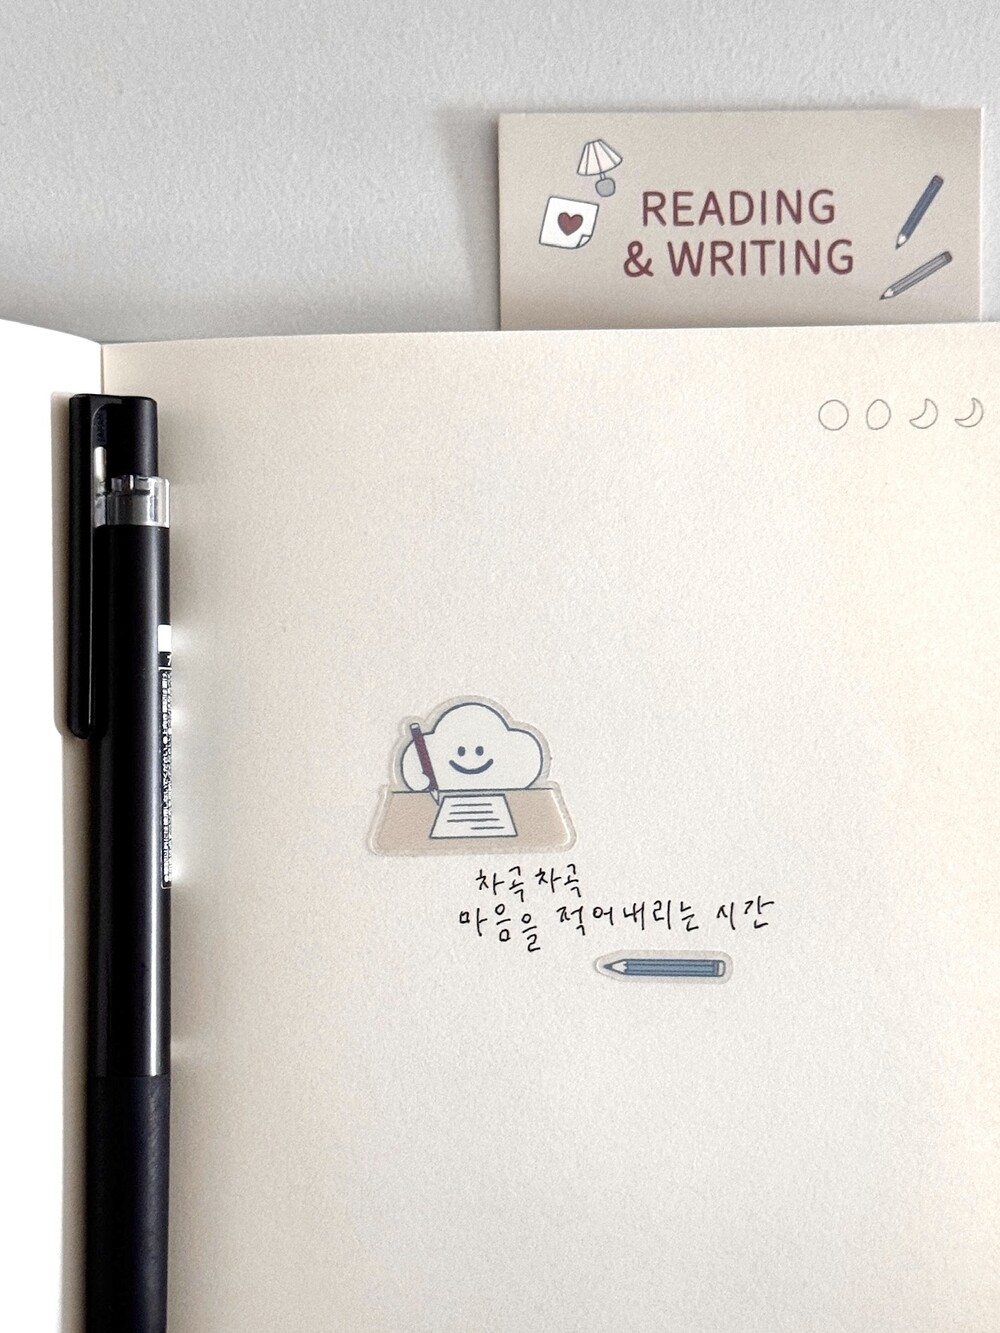 READING
& WRITING
차곡차곡
마음을 적어내리는 시간